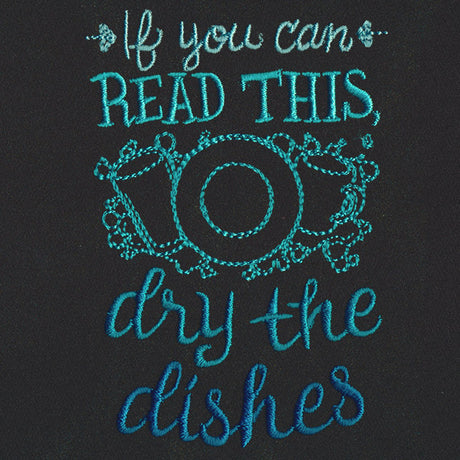 If you can
READ THIS,
dry the
dishes